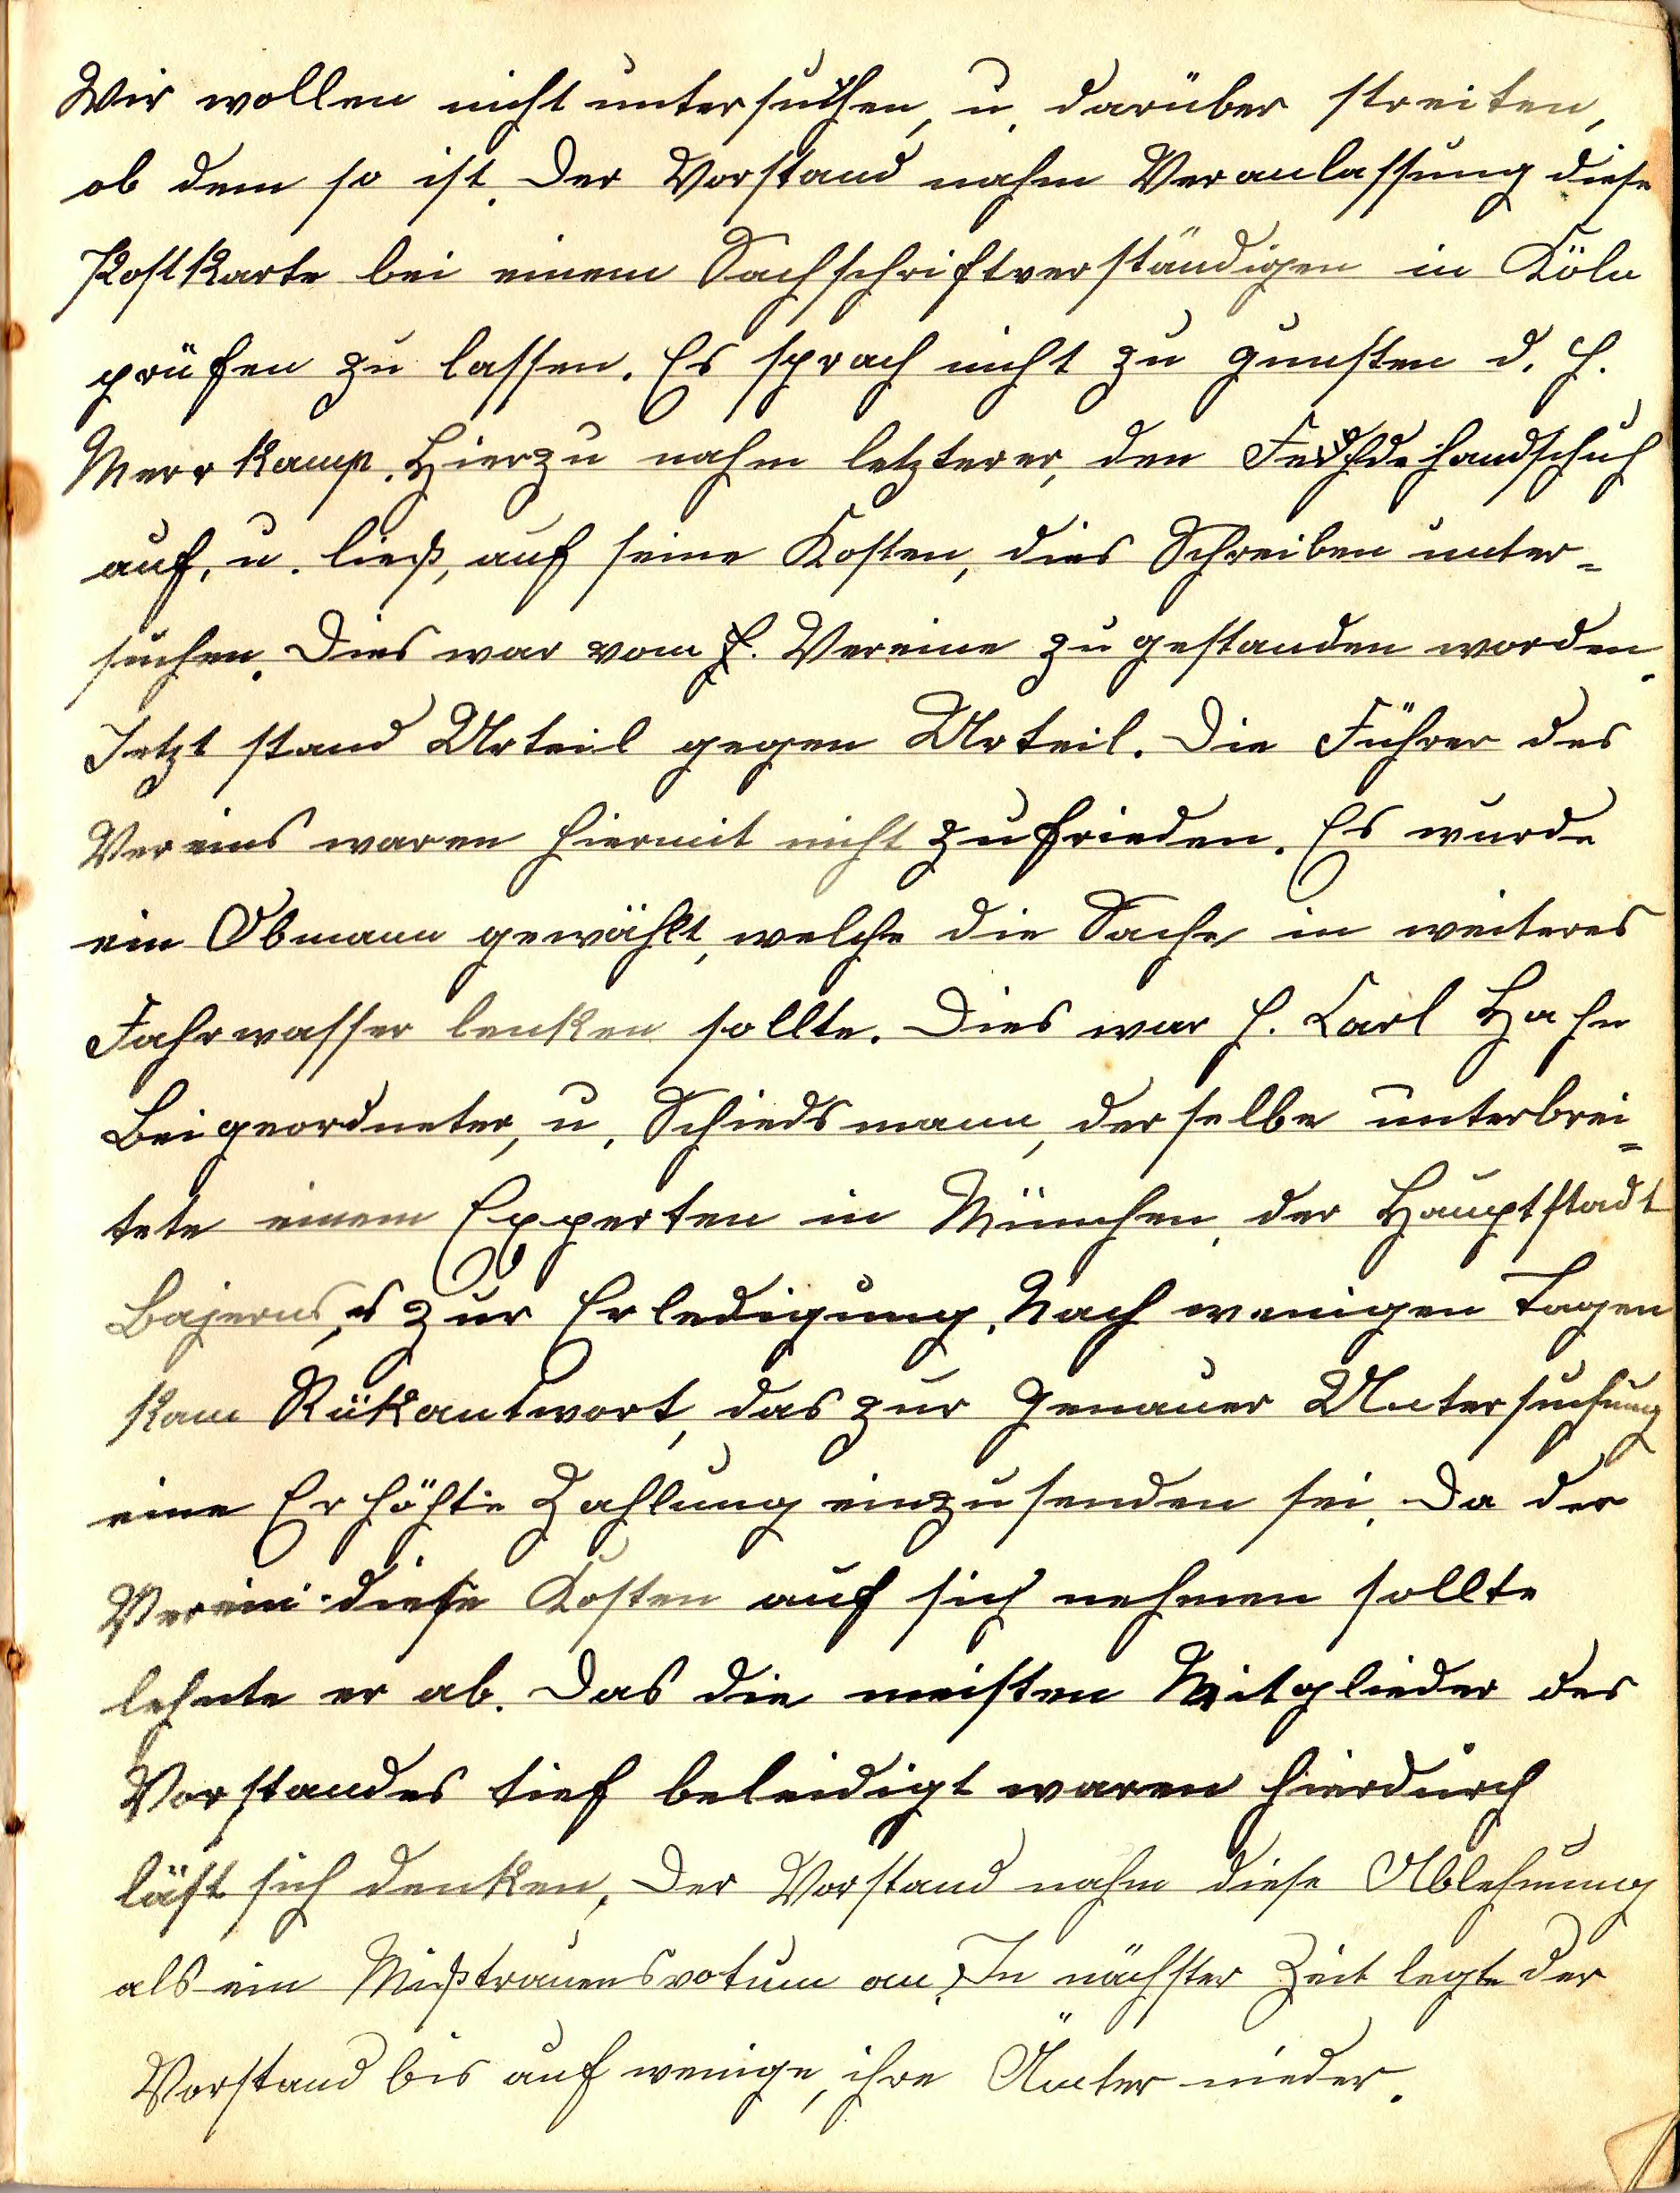 Wir wollen nicht untersuchen, u. darüber streiten,
ob dem so ist. Der Vorstand nahm Veranlassung diese
Postkarte bei einem Sachschriftverständigen in Köln
prüfen zu lassen. Es sprach nicht zu gunsten d. H.
Merrkamp. Hierzu nahm letzterer, den Fehdehandschuh
auf, u. ließ, auf seine Kosten, dies Schreiben unter=
suchen. Dies war vom H. Vereine zugestanden worden.
Jetzt stand Urteil gegen Urteil. Die Führer des
Vereins waren hiermit nicht zufrieden. Es wurde
ein Obmann gewählt, welche die Sache in weiteres
Fahrwasser lenken sollte. Dies war H. Carl Hahn
Beigeordneter, u. Schiedsmann, derselbe unterbrei=
tete einem Experten in München, der Hauptstadt
Bajerns, es zur Erledigung. Nach wenigen Tagen
kam Rükantwort, das zur Genauer Untersuchung
eine Erhöhte Zahlung einzusenden sei. Da der
Verein diese Kosten auf sich nehmen sollte
lehnte er ab. Das die meisten Mitglieder des
Vorstandes tief beleidigt waren hierdurch
läst sich denken. Der Vorstand nahm diese Ablehnung
als ein Mißtrauensvotum an. In nächster Zeit legte der
Vorstand bis auf wenige, ihre Ämter nieder.